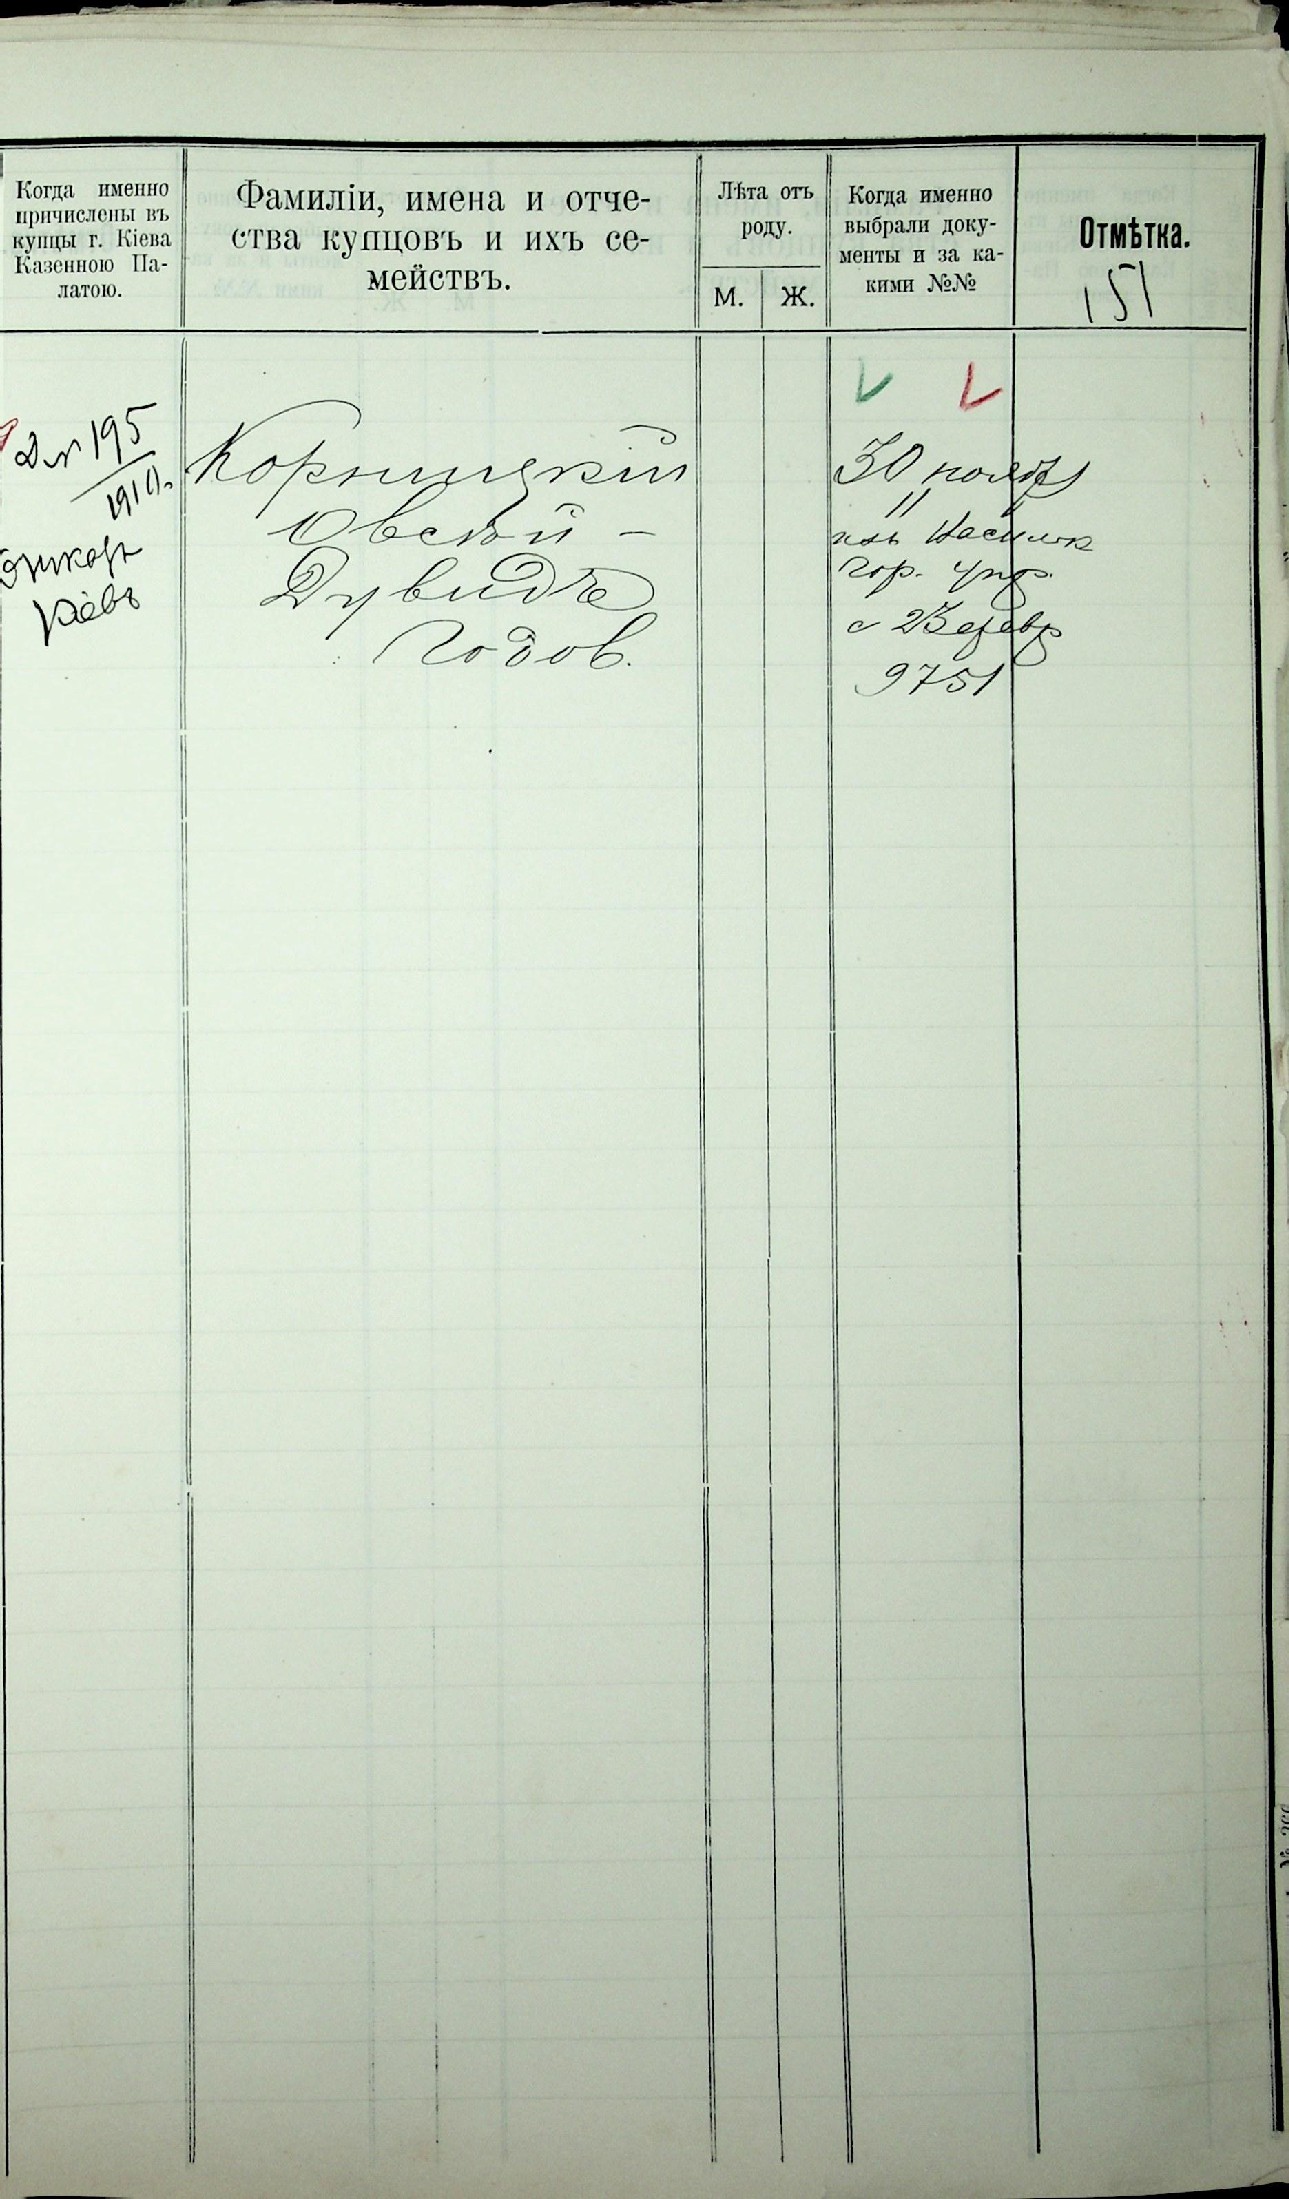 Когда именно
причислены въ
купцы г. Кіева
Казенною Па-
латою.
Фамиліи, имена и отче-
ства купцовъ и ихъ се-
мействъ.
Лѣта отъ
роду.
М. Ж.
Когда именно
выбрали доку-
менты и за ка-
кими №№
Отмѣтка.
151
195
1910.
Кіевъ
Корницкій
Овсѣй -
Дувидъ
Годов.
30 нояб
изъ Василк
гор. упр.
с
9751